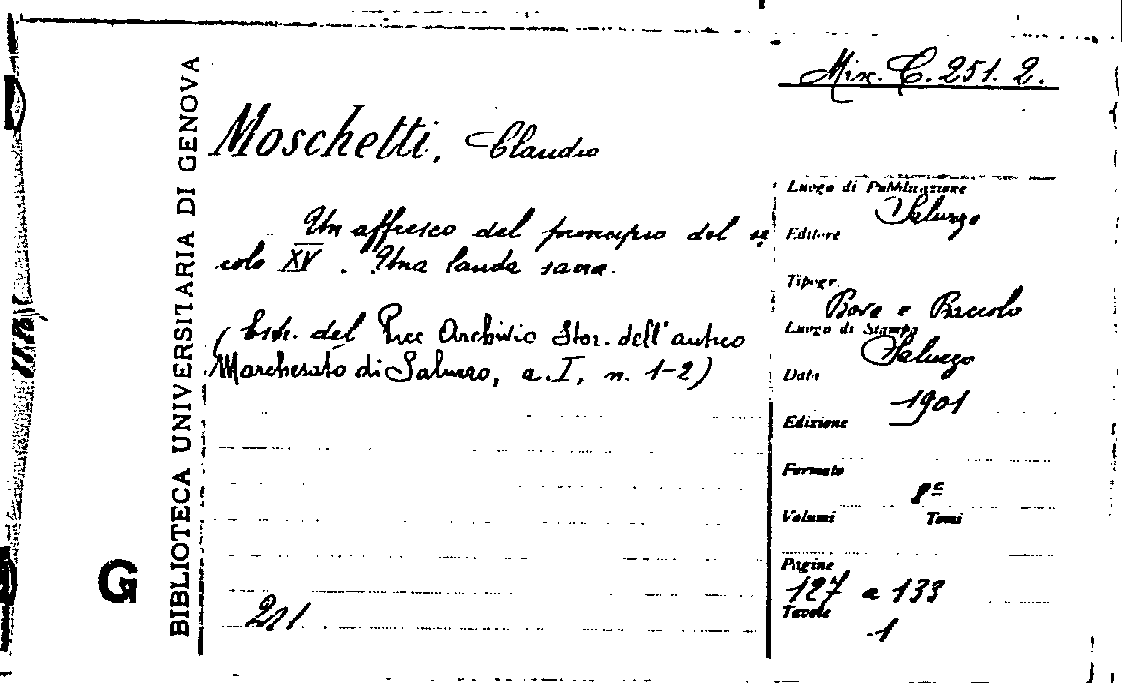 BIBLIOTECA UNIVERSITARIA DI GENOVA
G
Mix. C. 251. 2.
Moschetti, Claudio
Un affresco del principio del se
colo XV. Una lauda sacra.
(Estr. del Picc Archivio Stor. dell'antico
Marchesato di Saluzzo, a. I, n. 1-2)
211
Luogo di Pubblicazione
Saluzzo
Editore
Tipogr.
Bovo e Baccolo
Luogo di Stampa
Saluzzo
Data
1901
Edizione
Formato
8°
Volumi Tomi
Pagine
127 a 133
Tavole
1